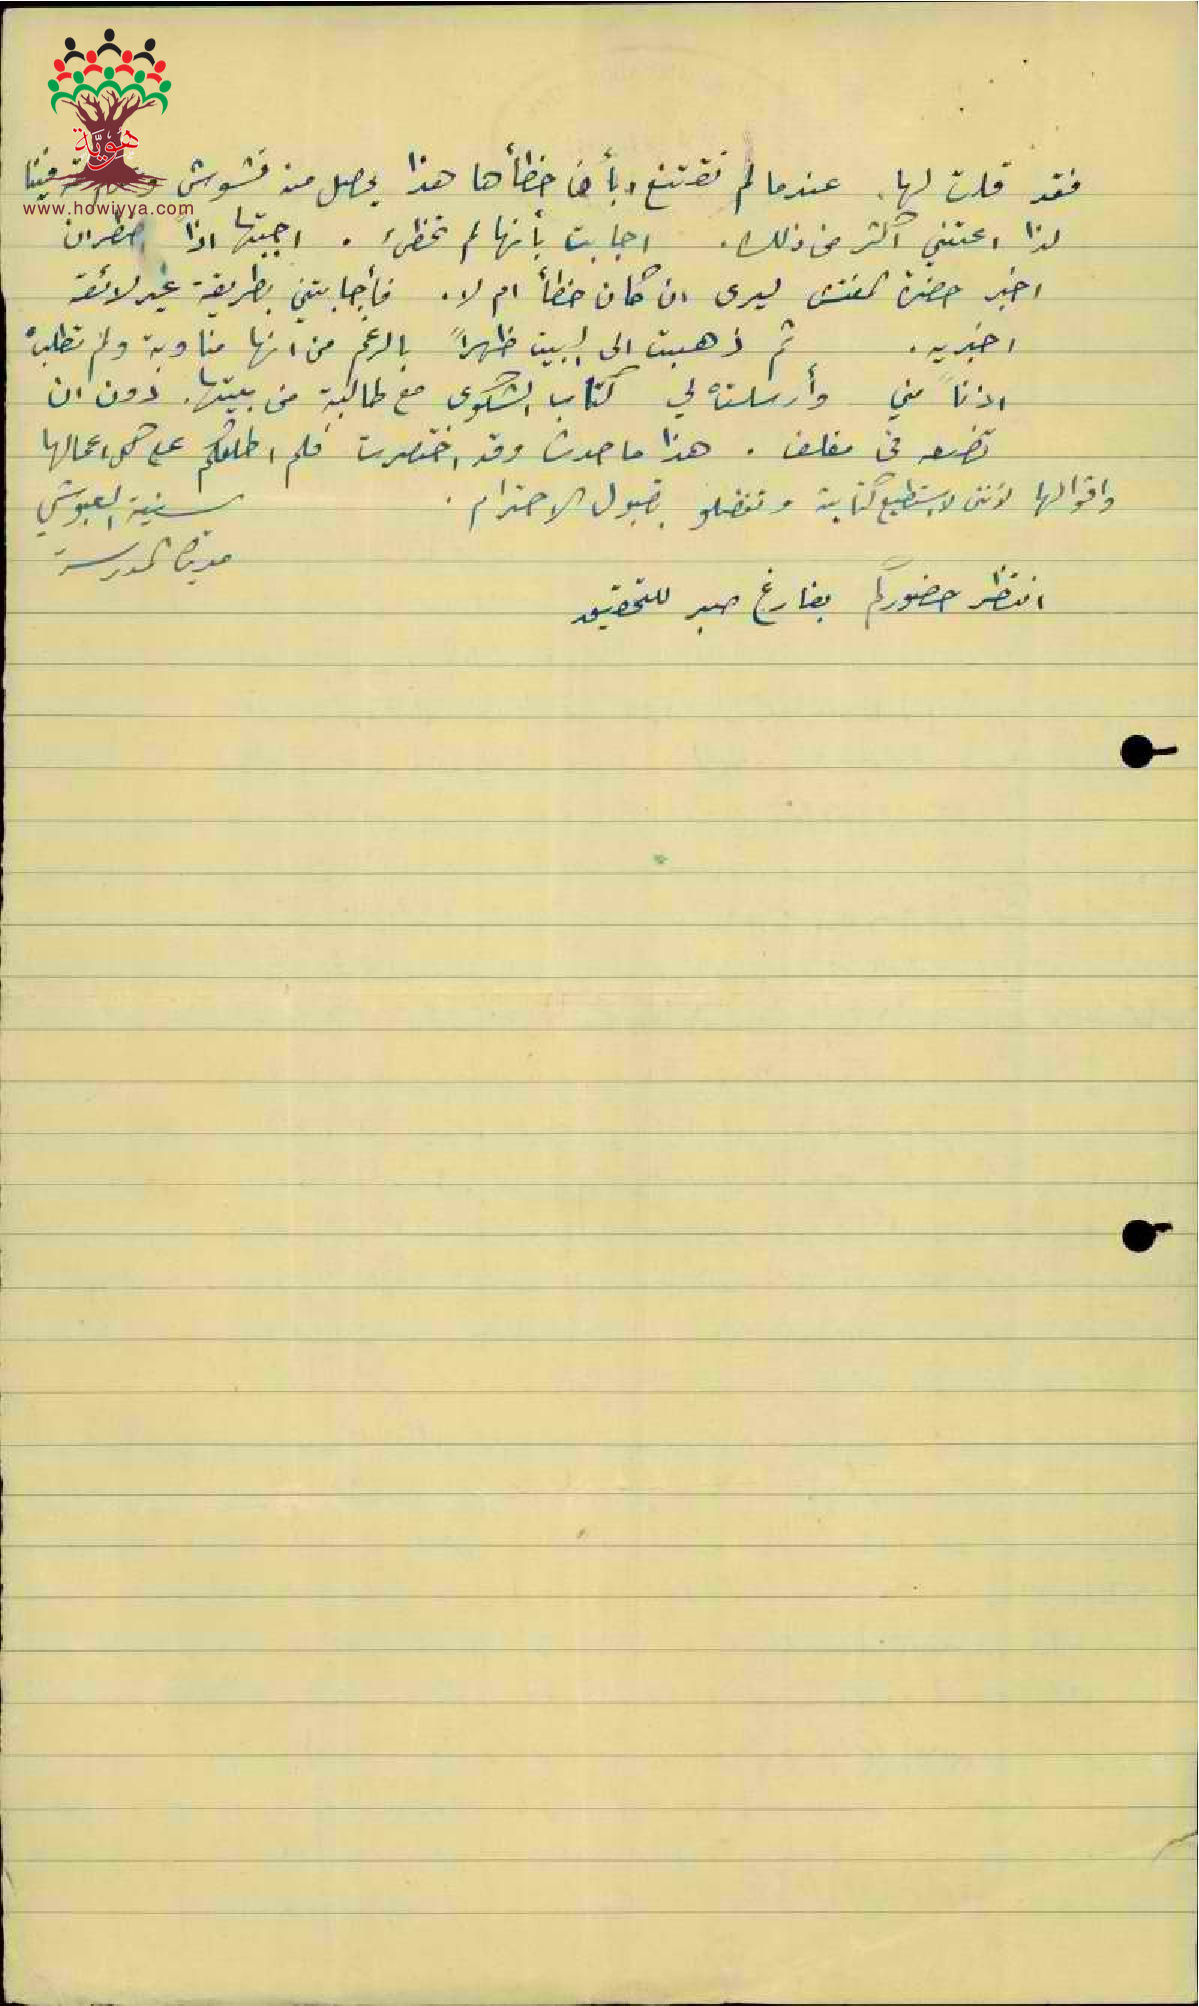 هوية
www.howiyya.com
فقد قلت لها. عندما لم تقتنع بأن خطأها هذا يحصل منه تشويش فينا
لذا اعتني أكثر من ذلك. اجابت بأنها لم تخطئ. اجبتها اذاً اضطر ان
اخبر حضرة المفتش ليرى ان كان خطأ ام لا. فأجابتني بطريقة غير لائقة
اخبريه. ثم ذهبت الى البيت ظهراً بالرغم من انها مناوبة ولم تطلب
اذناً مني وأرسلت لي كتاب الشكوى مع طالبة من بيتها. دون ان
تضعه في مغلف. هذا ما حدث وقد اختصرت فلم اطلعكم على كل اعمالها
واقوالها لأنني لا استطيع كتابية وتفضلو بقبول الاحترام.
سنية العبوشي
مديرة المدرسة
انتظر حضوركم بفارغ صبر للتحقيق